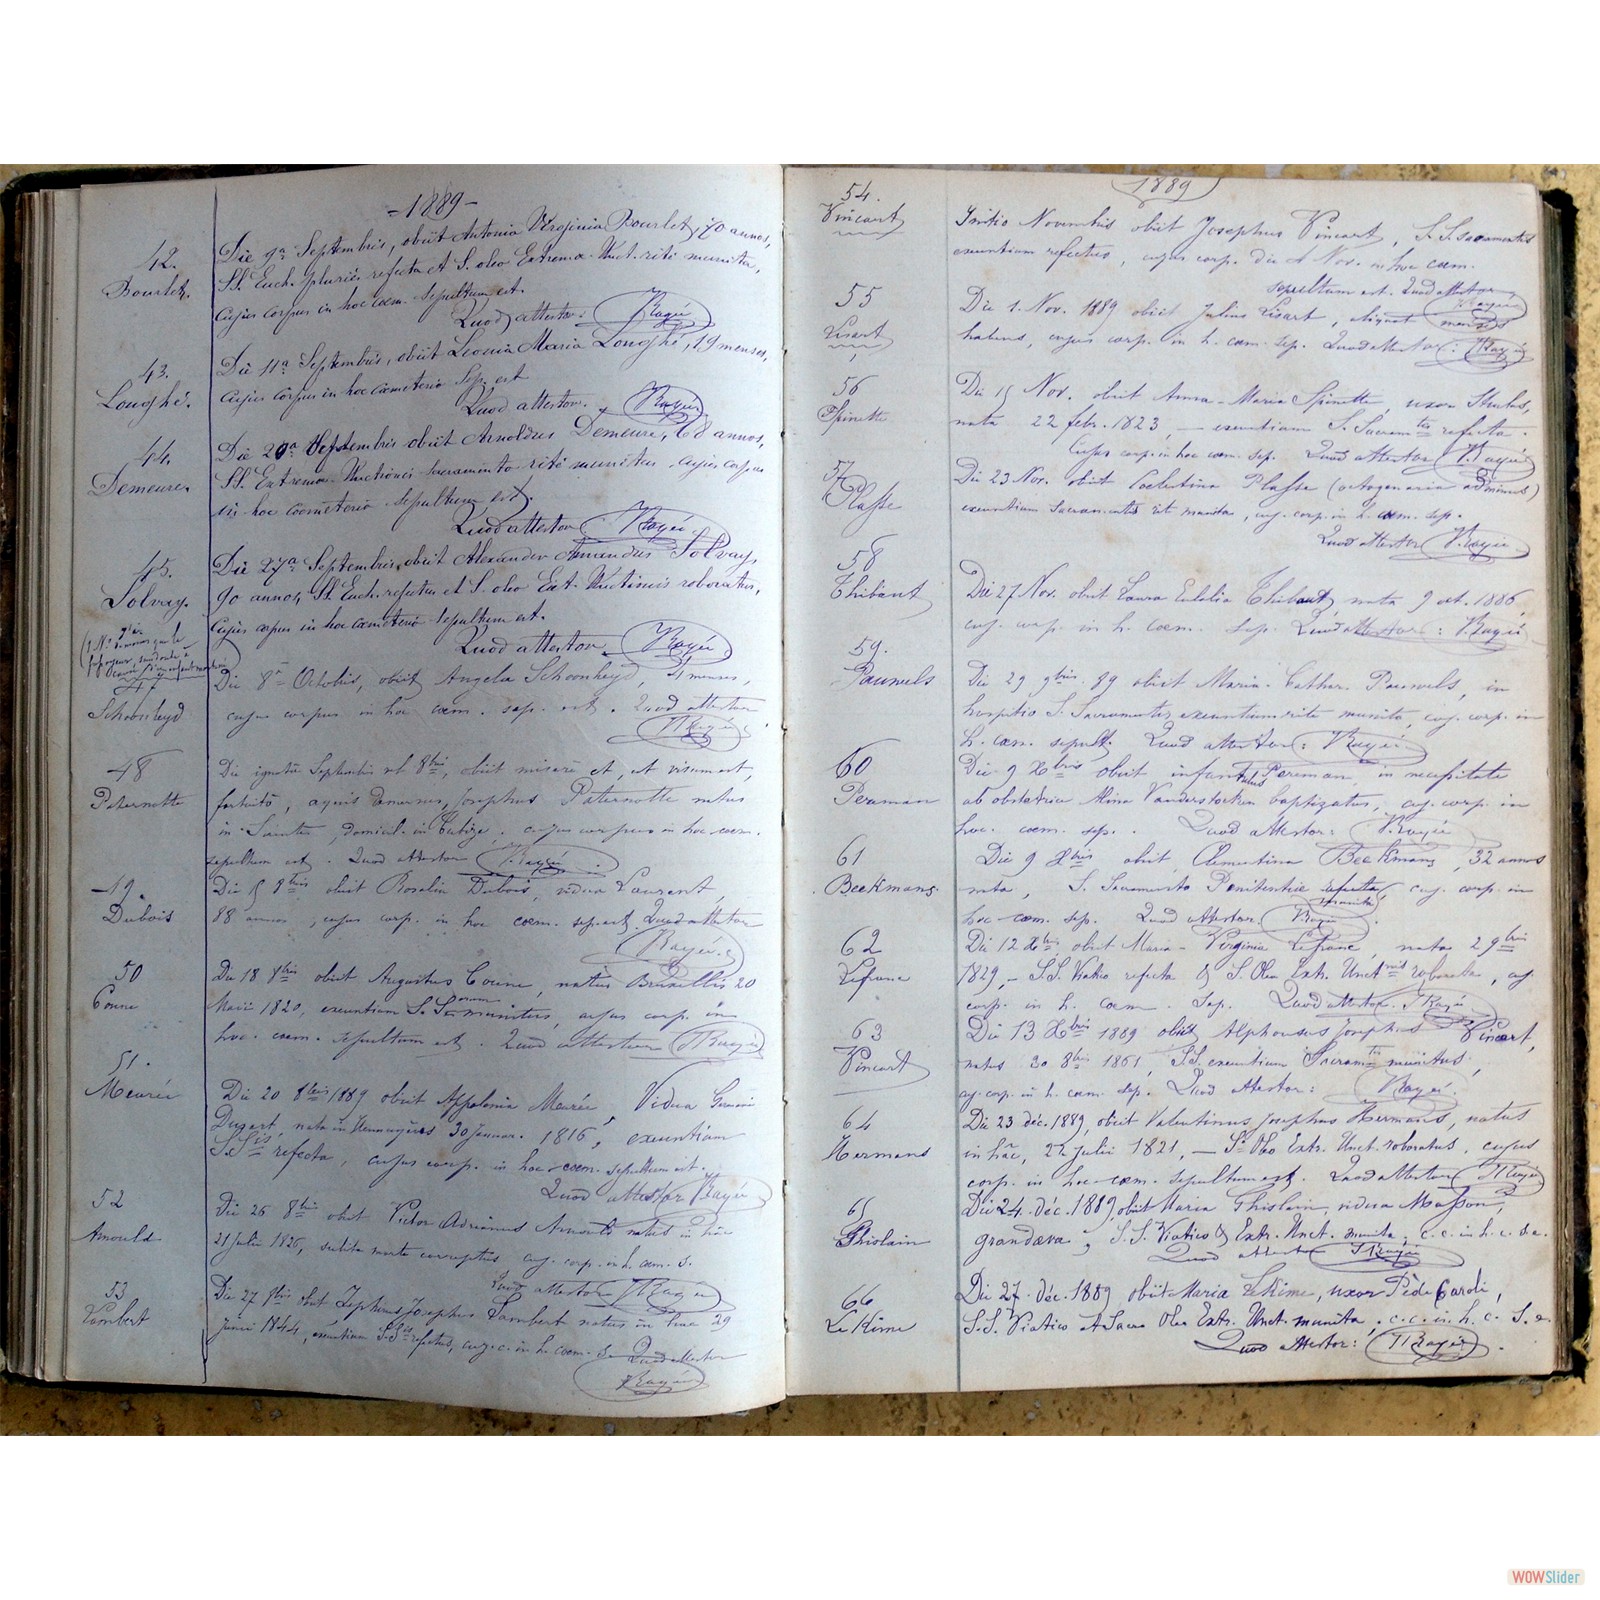 -1889-
42.
Bourlet.
Die 9a Septembris, obiit Antonia Virginia Bourlet, 70 annos,
SS. Euch. pluriès refecta et S. oleo Extremæ-Unct. ritè munita,
cujus corpus in hoc cœm. sepultum est.
Quod attestor: Rayée
43.
Longhé.
Die 11a Septembris, obiit Leonia Maria Longhé, 19 menses,
cujus corpus in hoc cœmeterio Sep. est
Quod attestor. Rayée
44.
Demeure.
Die 20a Septembris obiit Arnoldus Demeure, 68 annos,
SS. Extremæ-Unctionis Sacramento ritè munitus cujus corpus
in hoc cœmeterio sepultum est.
Quod attestor Rayée
45.
Solvay.
Die 27a Septembris, obiit Alexander Amandus Solvay,
90 annos, SS. Euch. refectus et S. oleo Ext. Unctionis roboratus,
cujus corpus in hoc cœmeterio sepultum est.
Quod attestor Rayée
47
Schoonheyd
Die 8a Octobris, obiit Angela Schoonheyd, menses,
cujus corpus in hoc cœm. sep. est. Quod attestor
Rayée
48
Paternotte
Die ignotâ Septembris vel 8bris, obiit miserè et, ut visum est,
fortuitò, aquis demersus, Josephus Paternotte natus
in Saintes, domicil. in Tubize. cujus corpus in hoc cœm.
sepultum est. Quod attestor Rayée
49.
Dubois
Die 15 8bris obiit Rosalia Dubois, vidua Laurent,
88 annos, cujus corp. in hoc cœm. sep. est. Quod attestor
Rayée.
50
Coune
Die 18 8bris obiit Augustus Coune, natus Bruxellis 20
Martii 1820, exeuntium S. S. munitus, cujus corp. in
hoc cœm. sepultum est. Quod attestor Rayée
51.
Meurée
Die 20 8bris 1889 obiit Appolonia Meurée, Vidua Germani
Dugert, nata in Hennuyères 30 Januar. 1816, exeuntium
S.S. refecta, cujus corp. in hoc cœm. sepultum est.
Quod attestor Rayée
52
Arnould
Die 26 8bris obiit Victor Adrianus Arnould natus in hâc
21 Julii 1826, subita morte correptus cuj. corp. in h. cœm. s.
Quod attestor Rayée
53
Lambert
Die 27 8bris obiit Zephirus Josephus Lambert natus in hac 29
Junii 1844, exeuntium SS refectus, cuj. c. in h. cœm. s. Quod attestor
Rayée
1889
54.
Vincart
Initio Novembris obiit Josephus Vincart, S.S. Sacramentis
exeuntium refectus, cujus corp. die 4 Nov. in hoc cœm.
sepultum est. Quod attestor
Rayée
55
Lisart
Die 1. Nov. 1889 obiit Julius Lisart, aliquot menses
habens, cujus corp. in h. cœm. sep. Quod attestor: Rayée
56
Spinette
Die 15 Nov. obiit Anna-Maria Spinette, uxor
nata 22 febr. 1823, — exeuntium S. Sacramtis refecta.
Cujus corp. in hoc cœm. sep. Quod attestor Rayée
57
Plasse
Die 23 Nov. obiit Coelestina Plasse (octogenaria ad minus)
exeuntium Sacramentis rit munita, cuj. corp. in h. cœm. sep.
Quod attestor Rayée
58
Thibaut
Die 27 Nov. obiit Laura Eulalia Thibaut, nata 9 oct. 1886,
cuj. corp. in h. cœm. sep. Quod attestor: Rayée
59.
Pauwels
Die 29 9bris 89 obiit Maria-Cathar. Pauwels, in
hospitio S. Sacramentis exeuntium rite munita, cuj. corp. in
h. cœm. sepult. Quod attestor: Rayée
60
Pereman
Die 9 Xbris obiit infantulus Pereman, in necessitate
ab obstetrice Alina Vanderstocken baptizatus, cuj. corp. in
hoc cœm. sep. Quod attestor: Rayée
61
Beekmans.
Die 9 Xbris obiit Clementina Beekmans, 32 annos
nata, S. Sacramento Penitentiæ refecta munita, cuj. corp. in
hoc cœm. sep. Quod attestor. Rayée
62
Lefranc
Die 12 Xbris obiit Maria-Virginia Lefranc nata 2 9bris
1829, — S.S. Viatico refecta & S. Oleo Extr. Unctnis roborata, cuj.
corp. in h. cœm. Sep. Quod attestor Rayée
63
Vincart
Die 13 Xbris 1889 obiit Alphonsus Josephus Vincart,
natus 30 8bris 1861, S.S. exeuntium Sacramtis munitus,
cuj. corp. in h. cœm. sep. Quod attestor: Rayée
64
Hermans
Die 23 déc. 1889, obiit Valentinus Josephus Hermans, natus
in hâc, 22 Julii 1821, — So Oleo Extr. Unct. roboratus, cujus
corp. in hoc cœm. sepultum est. Quod attestor Rayée
65
Ghislain
Die 24 déc. 1889 obiit Maria Ghislain, vidua Masson,
grandæva, S.S. Viatico & Extr. Unct. munita, c. c. in h. c. s. e.
Quod attestor Rayée
66
LeKime
Die 27 déc. 1889 obiit Maria LeKime, uxor Pède Caroli,
S.S. Viatico et Sacro Oleo Extr. Unct. munita, c. c. in h. c. S. e.
Quod attestor: Rayée.
WOWSlider